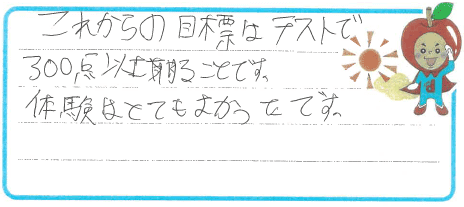 これからの目標はテストで
300点以上取ることです。
体験はとてもよかったです。